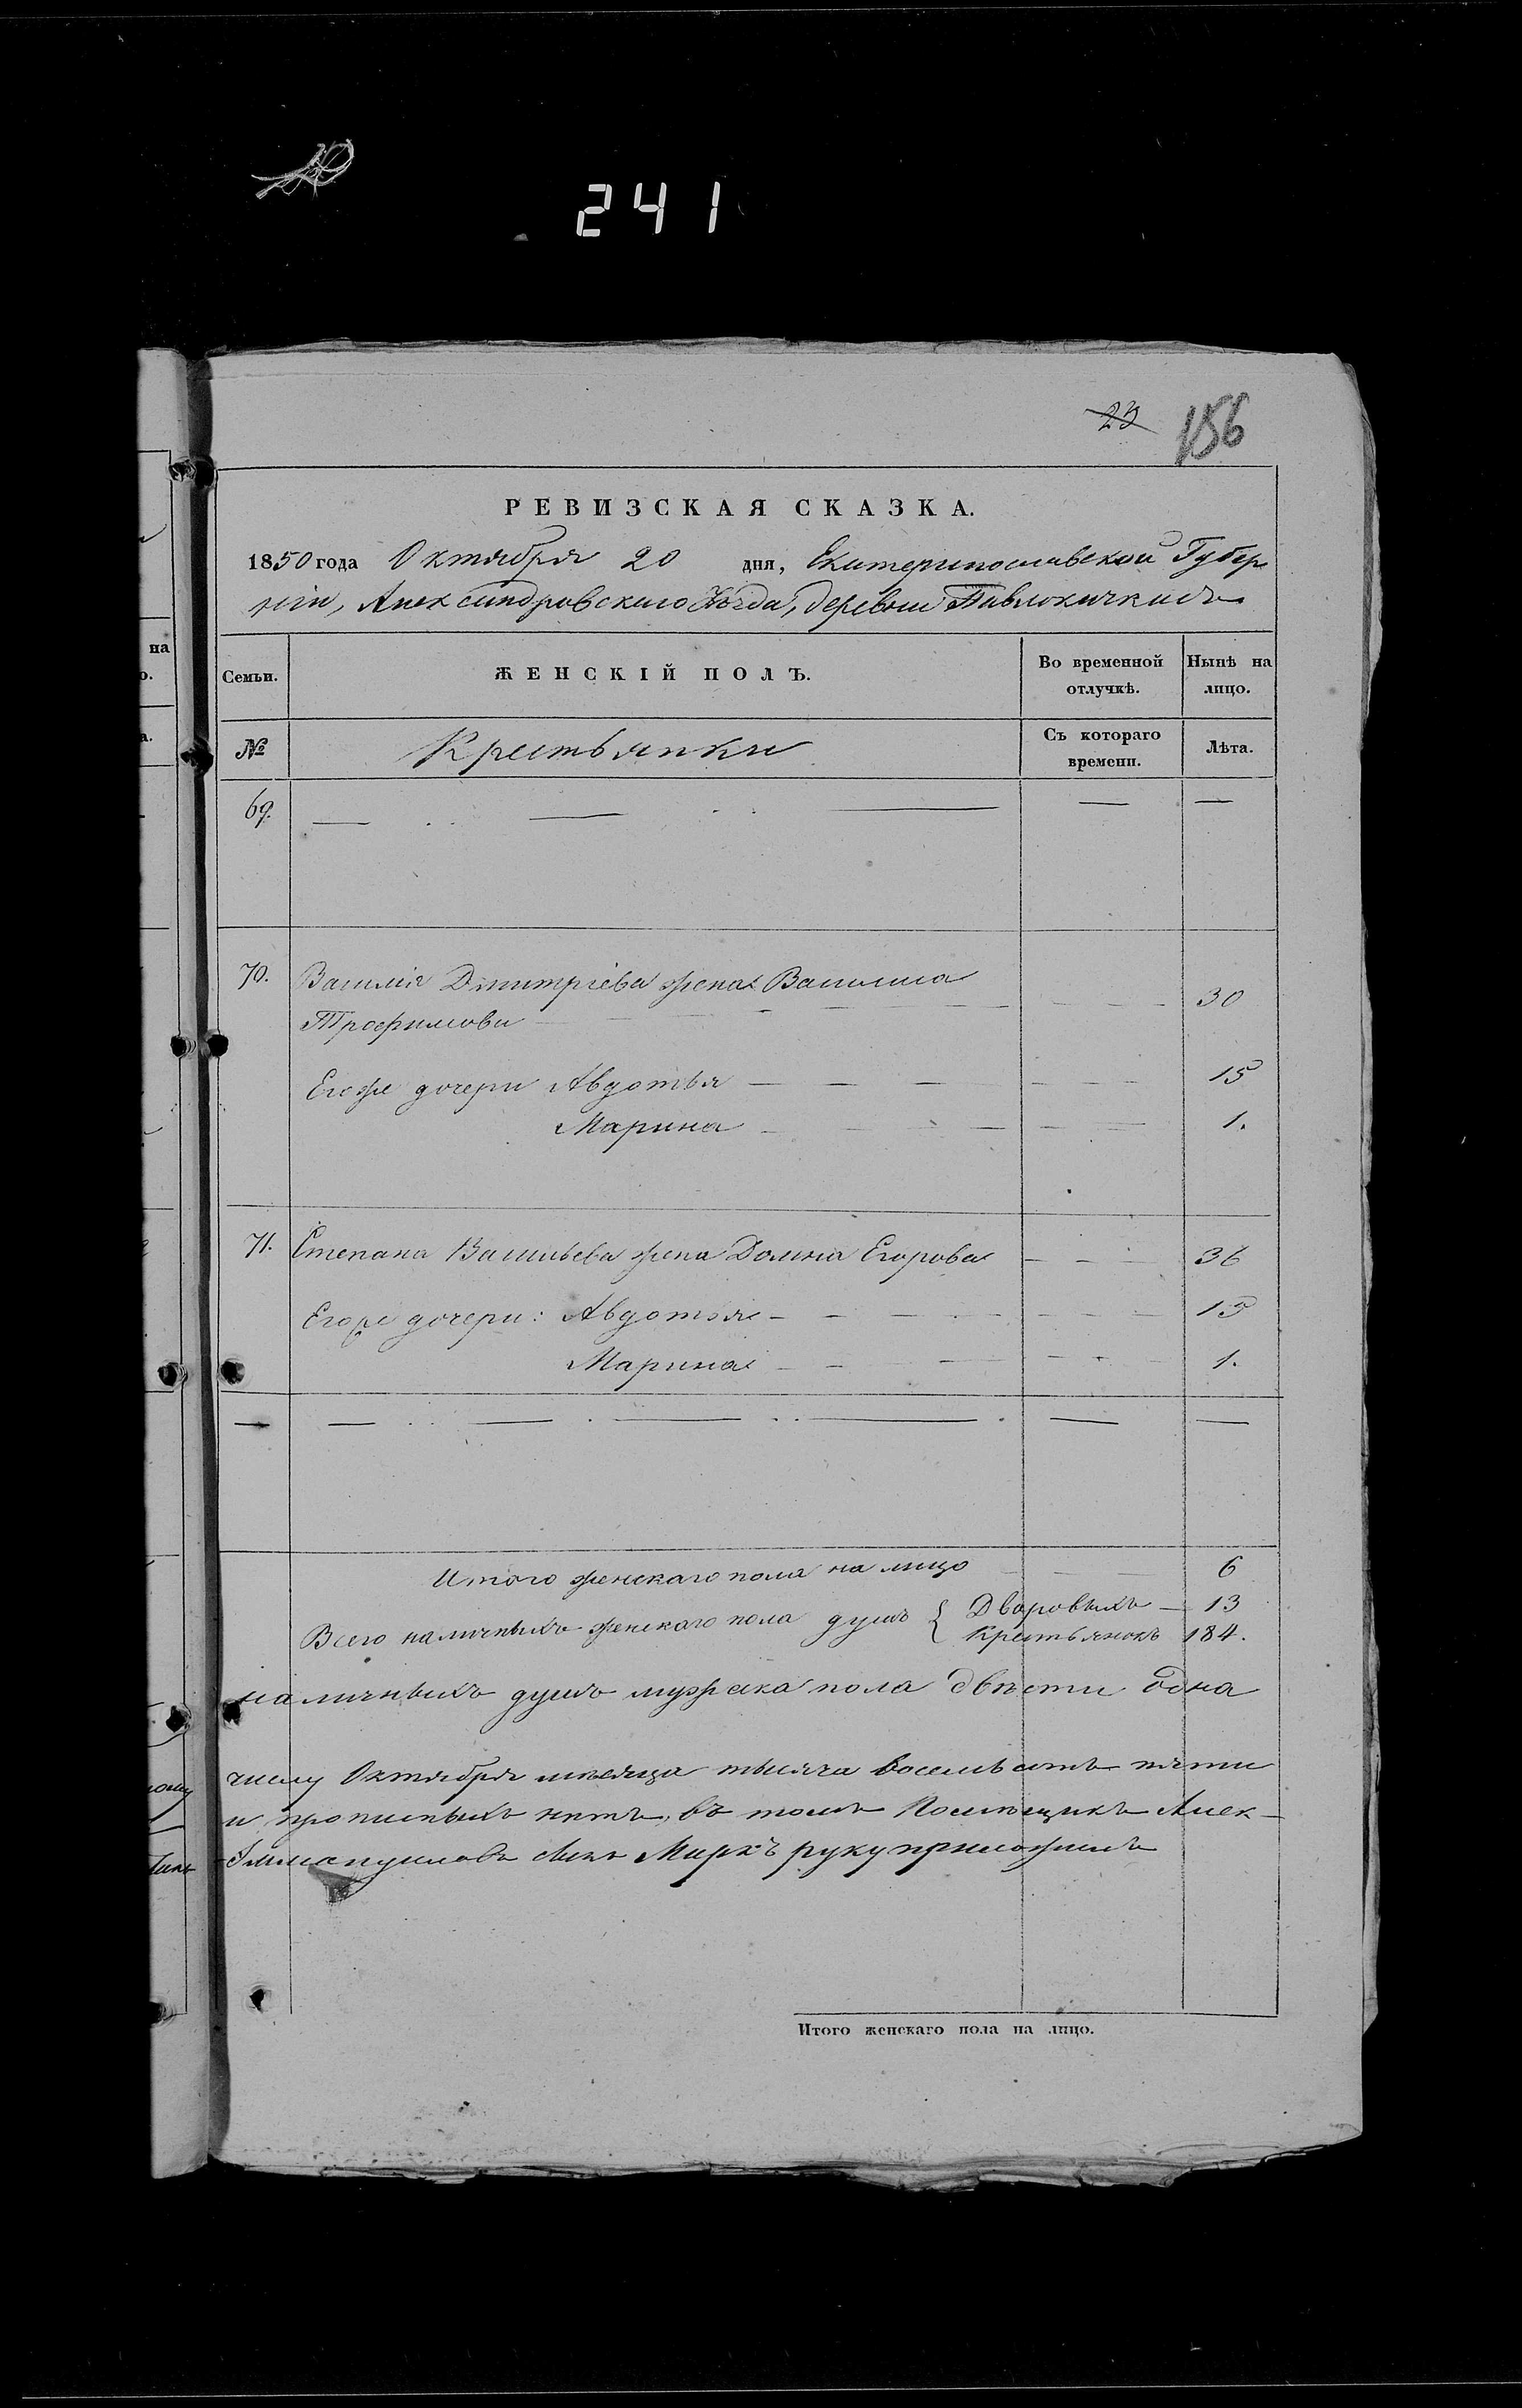 241
23 156
РЕВИЗСКАЯ СКАЗКА.
1850 года Октября 20 дня, Екатеринославской Губер
ніи, Александровскаго Уѣзда, деревни Павлокичкасъ
Семьи. ЖЕНСКІЙ ПОЛЪ. Во временной отлучкѣ. Нынѣ на лицо.
№ Крестьянки Съ котораго времени. Лѣта.
69. — — — — —
70. Василія Дмитріева жена Василиса
Трофимова — — — 30
Его же дочери Авдотья — — — 15
Марина — — — 1.
71. Степана Васильева жена Домна Егорова — — — 36
Егоже дочери: Авдотья — — — 15
Марина — — — 1.
— — — — — — —
Итого женскаго пола на лицо — 6
Всего наличныхъ женскаго пола душъ { Дворовыхъ — 13
Крестьянокъ 184.
наличныхъ душъ мужска пола двѣсти одна
числу Октября мѣсяца тысяча восемьсотъ пяти
и прописныхъ нѣтъ, въ томъ Помѣщикъ Алек-
Эммануиловъ сынъ Маркъ руку приложилъ
Итого женскаго пола на лицо.
на
о.
а.